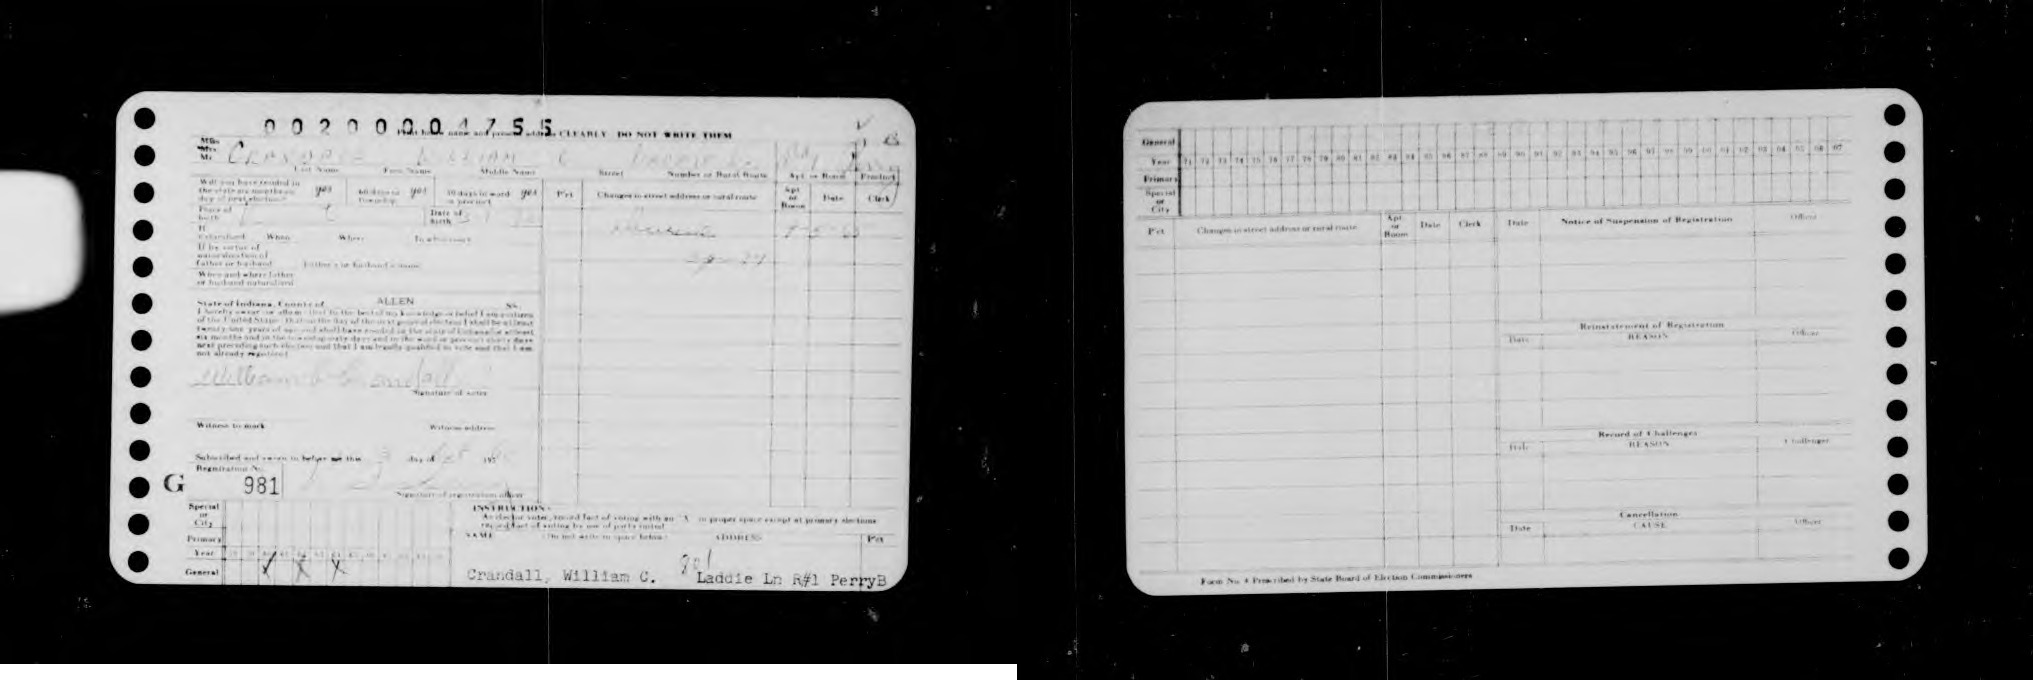 00200004755
Print both name and present address CLEARLY DO NOT WRITE THEM
Miss
Mrs.
Mr. CRANDALL WILLIAM C LADDIE LN. Rd 1 Perry B
Last Name First Name Middle Name Street Number or Rural Route Apt. or Room Precinct
Will you have resided in
the state six months on
day of next election? yes 60 days in township yes 30 days in ward or precinct yes
P'ct Changes in street address or rural route Apt. or Room Date Clerk
Place of birth
Date of birth
If naturalized When Where In what court
If by virtue of
naturalization of
father or husband Father's or husband's name
When and where father
or husband naturalized
State of Indiana, County of ALLEN SS.
I hereby swear or affirm that to the best of my knowledge or belief I am a citizen
of the United States that on the day of the next general election I shall be at least
twenty-one years of age and shall have resided in the state of Indiana for at least
six months and in the township sixty days and in the ward or precinct thirty days
next preceding such election and that I am legally qualified to vote and that I am
not already registered
William C Crandall
Signature of voter
Witness to mark Witness address
Subscribed and sworn to before me this 3 day of 195
Registration No.
G 981
Signature of registration officer
Special
or
City
Primary
Year
General
INSTRUCTION:
As elector votes, record fact of voting with an "X" in proper space except at primary elections
record fact of voting by use of party initial
NAME (Do not write in space below) ADDRESS P'ct
Crandall, William C. Laddie Ln R#1 PerryB
General
Year 71 72 73 74 75 76 77 78 79 80 81 82 83 84 85 86 87 88 89 90 91 92 93 94 95 96 97 98 99 00 01 02 03 04 05 06 07
Primary
Special
or
City
P'ct Changes in street address or rural route Apt. or Room Date Clerk
Date Notice of Suspension of Registration Officer
Reinstatement of Registration
Date REASON Officer
Record of Challenges
Date REASON Challenger
Cancellation
Date CAUSE Officer
Form No. 4 Prescribed by State Board of Election Commissioners